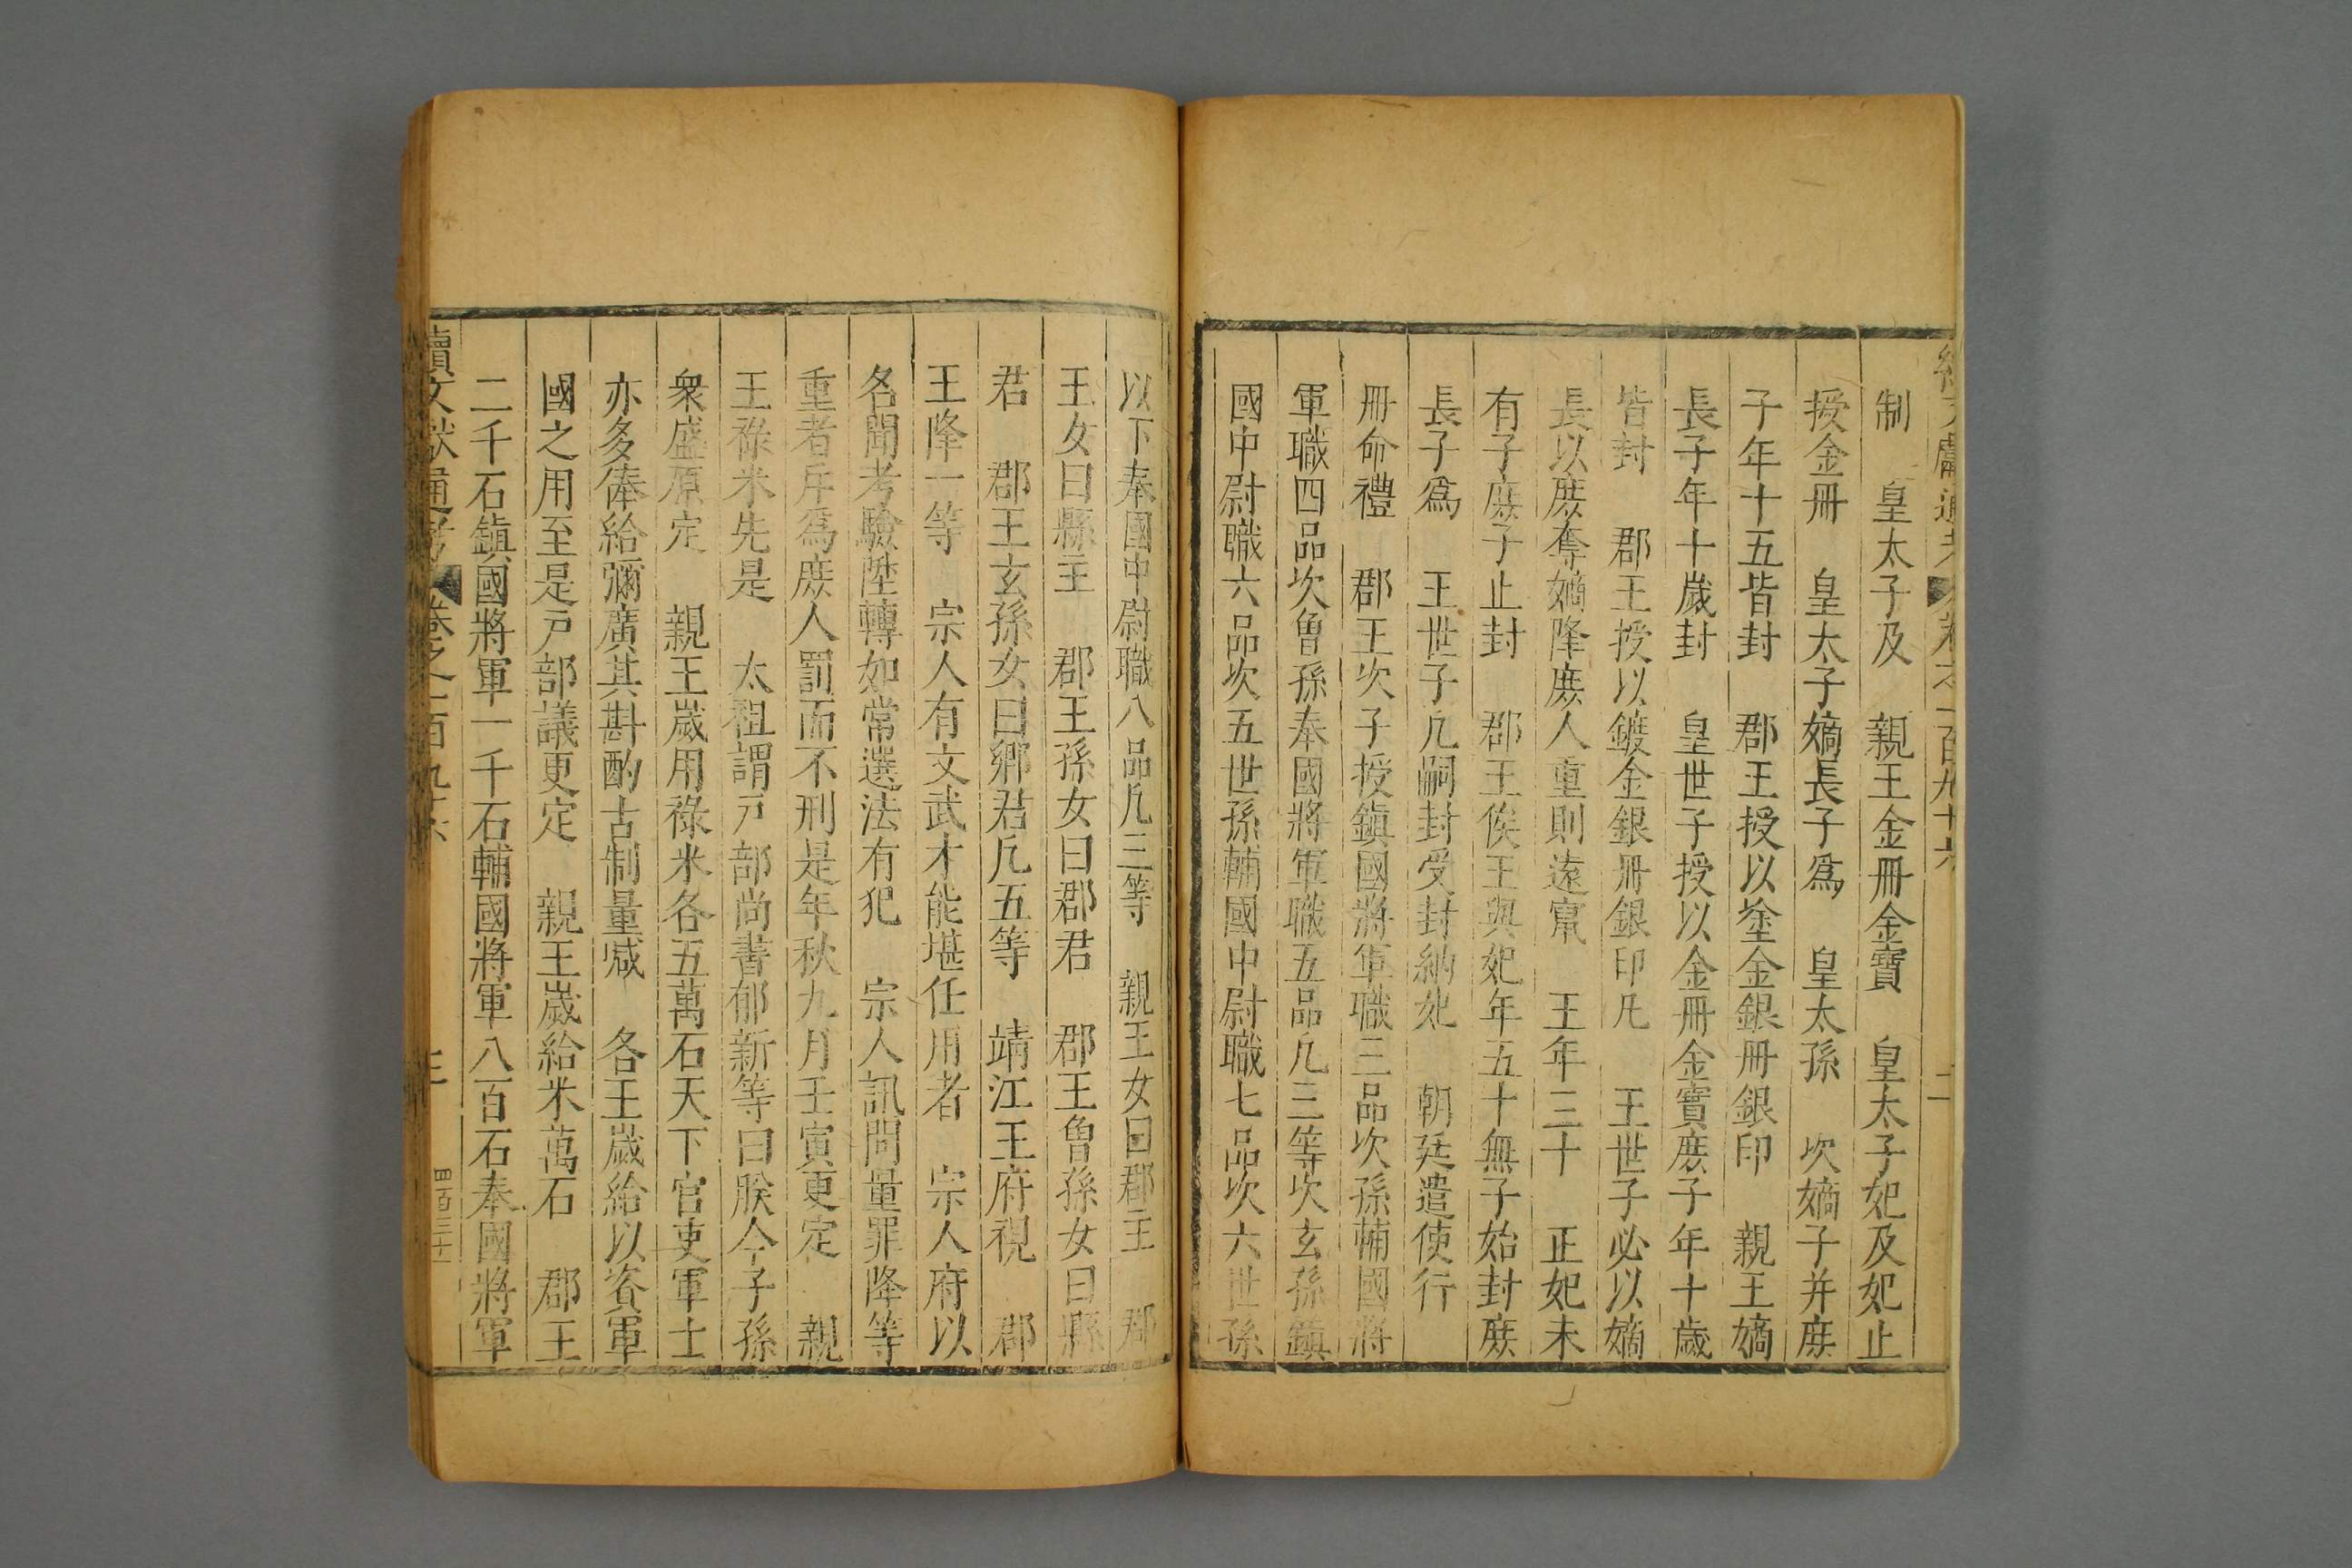 續文獻通考 卷之一百九十六 二
制 皇太子及 親王金冊金寶 皇太子妃及妃止
授金冊 皇太子嫡長子爲 皇太孫 次嫡子并庻
子年十五皆封 郡王授以塗金銀冊銀印 親王嫡
長子年十歲封 皇世子授以金冊金寳庻子年十歲
皆封 郡王授以鍍金銀冊銀印凡 王世子必以嫡
長以庻奪嫡降庻人重則遠竄 王年三十 正妃未
有子庻子止封 郡王俟王與妃年五十無子始封庻
長子爲 王世子凡嗣封受封納妃 朝廷遣使行
冊命禮 郡王次子授鎮國將軍職三品次孫輔國將
軍職四品次曾孫奉國將軍職五品凡三等次玄孫鎮
國中尉職六品次五世孫輔國中尉職七品次六世孫
以下奉國中尉職八品凡三等 親王女曰郡主 郡
王女曰縣主 郡王孫女曰郡君 郡王曾孫女曰縣
君 郡王玄孫女曰鄉君凡五等 靖江王府視 郡
王降一等 宗人有文武才能堪任用者 宗人府以
名聞考驗陞轉如常選法有犯 宗人訊問量罪降等
重者斥爲庻人罰而不刑是年秋九月壬寅更定 親
王祿米先是 太祖謂戶部尚書郁新等曰朕今子孫
衆盛原定 親王歲用祿米各五萬石天下官吏軍士
亦多俸給彌廣其斟酌古制量减 各王歲給以資軍
國之用至是戸部議更定 親王歲給米萬石 郡王
二千石鎮國將軍一千石輔國將軍八百石奉國將軍
續文獻通考 卷之一百九十六 三 四百三十一